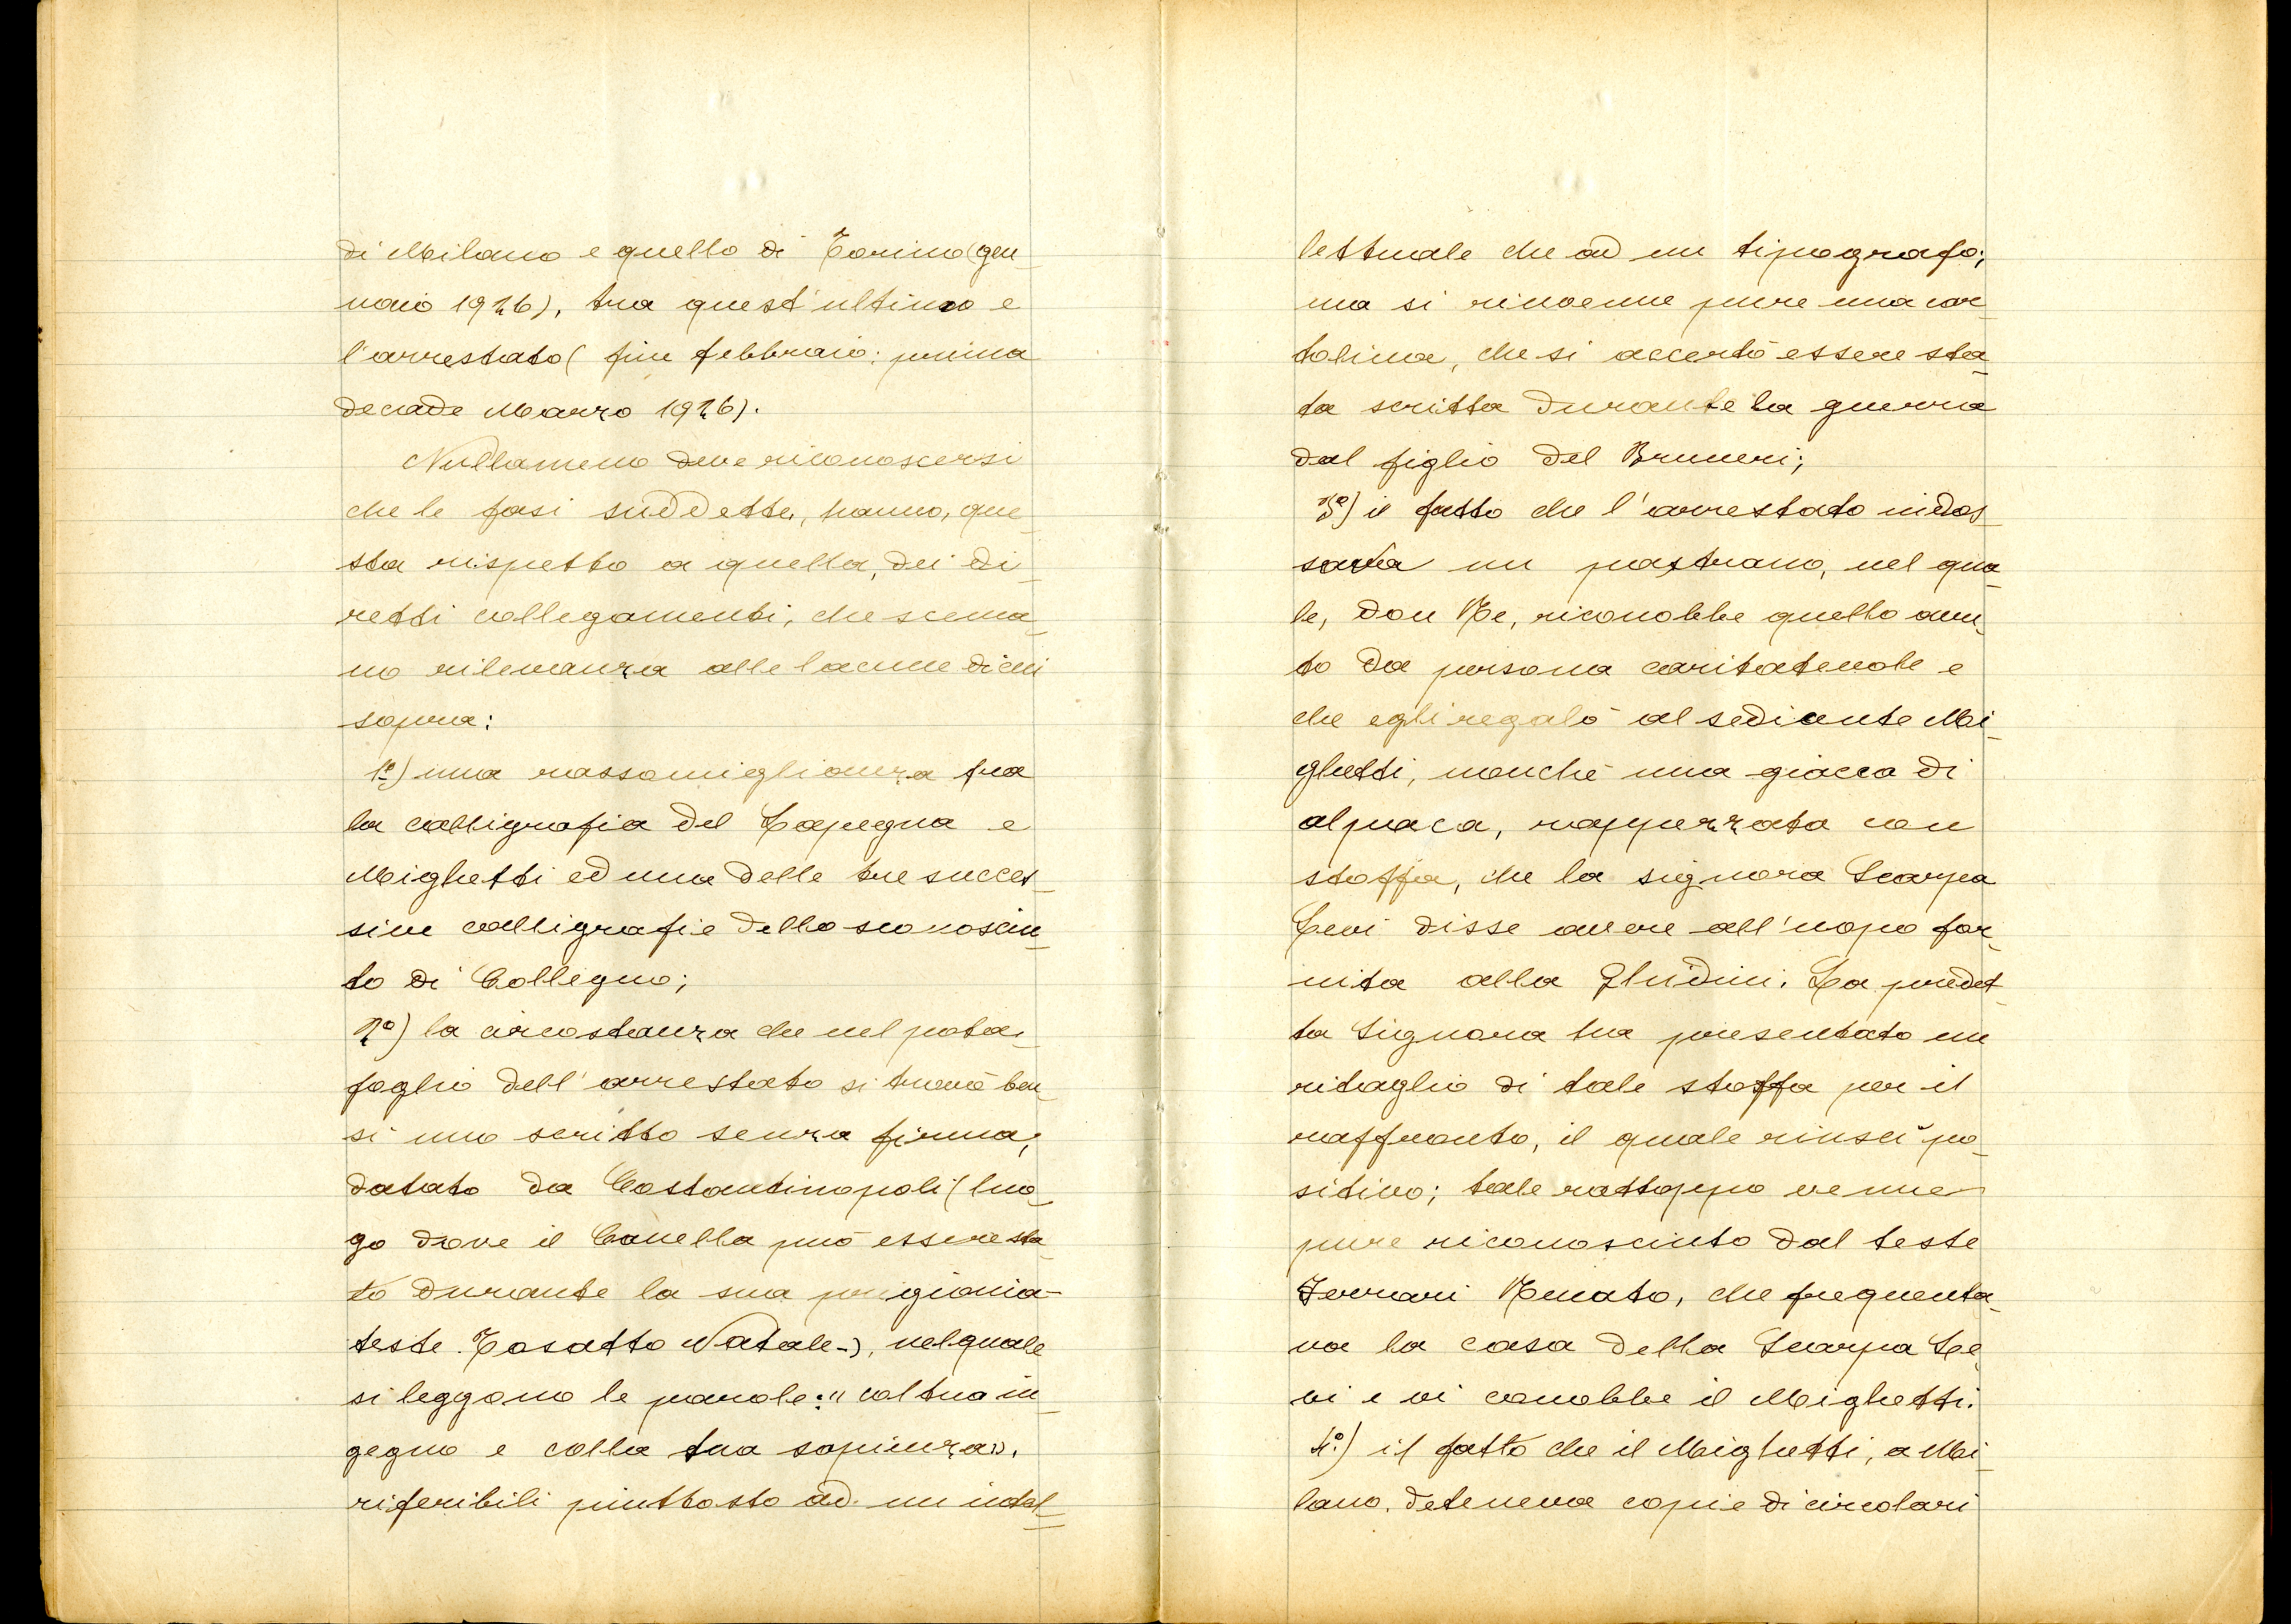 di Milano e quello di Torino (gen-
naio 1926), tra quest'ultimo e
l'arrestato (fine febbraio: prima
decade Marzo 1926).
Nullameno deve riconoscersi
che le fasi suddette, hanno, que-
sta rispetto a quella, dei di-
retti collegamenti, che scema-
no rilevanza alle lacune di cui
sopra:
1º) una rassomiglianza fra
la calligrafia del Lapegna e
Mighetti ed una delle tre succes-
sive calligrafie dello sconosciu-
to di Collegno;
2º) la circostanza che nel porta-
foglio dell'arrestato si trovò ben-
sì uno scritto senza firma,
datato da Costantinopoli (luo-
go dove il Canella può essere sta-
to durante la sua prigionia-
teste Tosatto Natale-), nel quale
si leggono le parole: "col tuo in-
gegno e colla tua sapienza",
riferibili piuttosto ad un intel-
lettuale che ad un tipografo;
ma si rinvenne pure una car-
tolina, che si accertò essere sta-
ta scritta durante la guerra
dal figlio del Bruneri;
3º) il fatto che l'arrestato indos-
sava un pastrano, nel qua-
le, Don Re, riconobbe quello avu-
to da persona caritatevole e
che egli regalò al sedicente Mi-
ghetti, nonchè una giacca di
alpaca, rappezzata con
stoffa, che la signora Scarpa
Levi disse avere all'uopo for-
nita alla Ghidini. La predet-
ta Signora ha presentato un
ritaglio di tale stoffa per il
raffronto, il quale riuscì po-
sitivo; tale rattoppo venne
pure riconosciuto dal teste
Ferrari Renato, che frequenta-
va la casa della Scarpa Le-
vi e vi conobbe il Mighetti.
4º) il fatto che il Mighetti, a Mi-
lano, deteneva copie di circolari